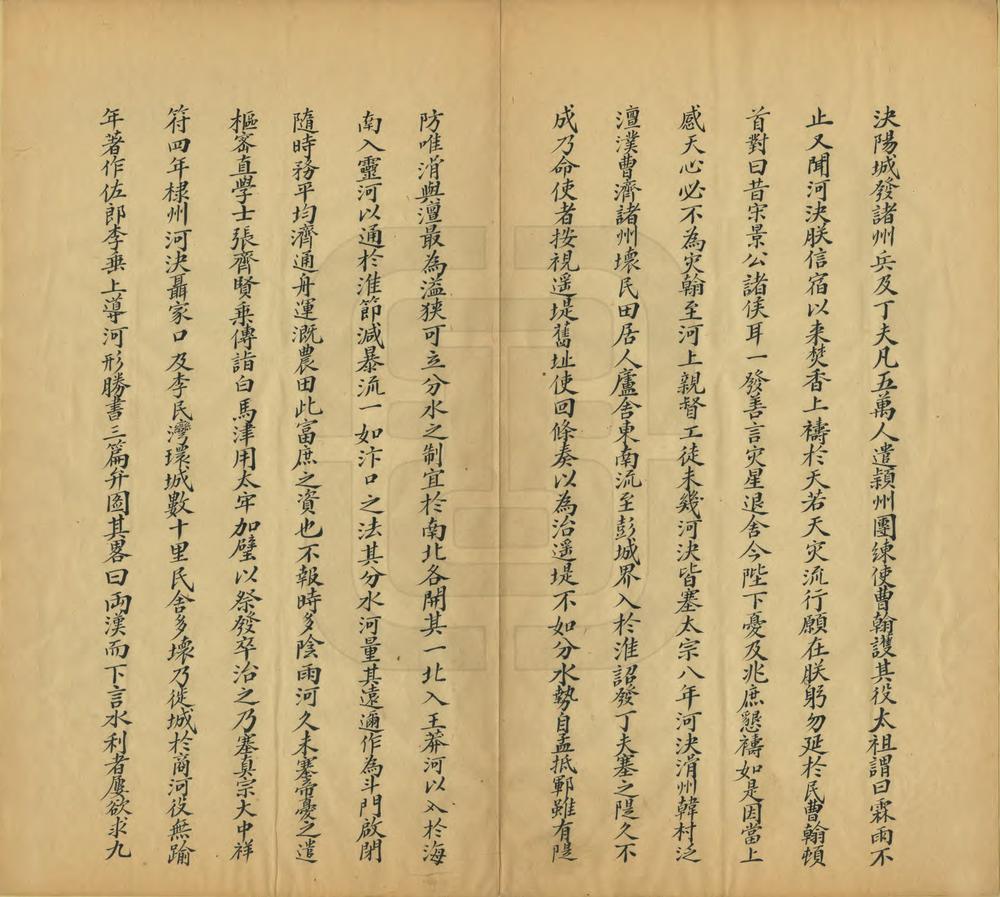 決陽城發諸州兵及丁夫凡五萬人遣潁州團練使曹翰護其役太祖謂曰霖雨不
止又聞河決朕信宿以来焚香上禱於天若天灾流行願在朕躬勿延於民曹翰頓
首對曰昔宋景公諸侯耳一發善言灾星退舍今陛下憂及兆庶懇禱如是因當上
感天心必不為灾翰至河上親督工徒未幾河決皆塞太宗八年河決滑州韓村泛
澶濮曹濟諸州壞民田居人廬舍東南流至彭城界入於淮詔發丁夫塞之隄久不
成乃命使者按視遥堤舊址使回條奏以為治遥堤不如分水勢自孟抵鄆雖有隄
防唯滑與澶最為溢狹可立分水之制宜於南北各開其一北入王莽河以入於海
南入靈河以通於淮節減暴流一如汴口之法其分水河量其遠邇作為斗門啟閉
隨時務平均濟通舟運溉農田此富庶之資也不報時多陰雨河久未塞帝憂之遣
樞密直學士張齊賢乗傳詣白馬津用太牢加璧以祭發卒治之乃塞真宗大中祥
符四年棣州河決聶家口及李民灣環城數十里民舍多壞乃徙城於商河役無踰
年著作佐郎李垂上導河形勝書三篇并圖其畧曰兩漢而下言水利者屢欲求九